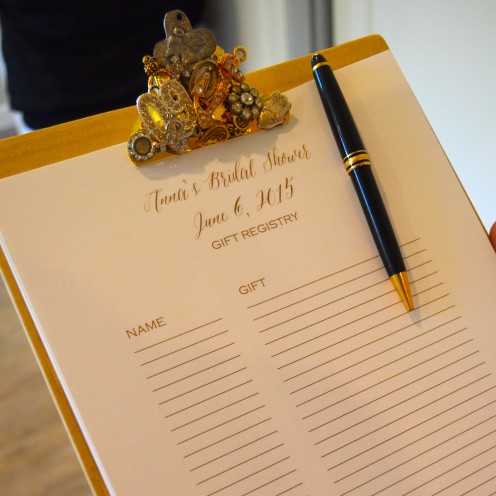 Anna's Bridal Shower
June 6, 2015
GIFT REGISTRY
NAME GIFT